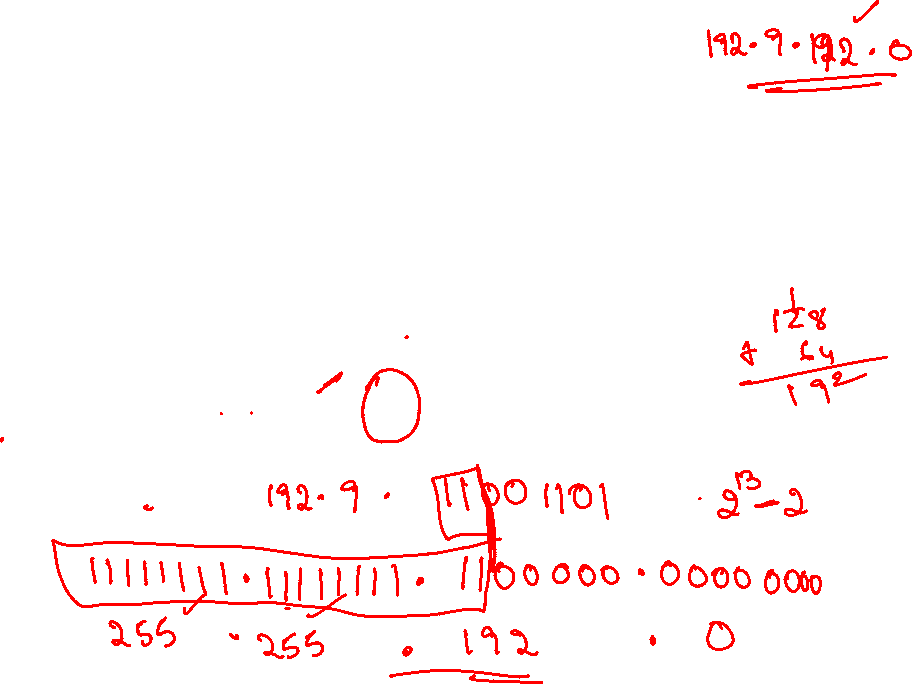 192.9.192.0
128
+ 64
192
192.9. 11001101 2^13-2
11111111.11111111.11000000.00000000
255.255.192.0